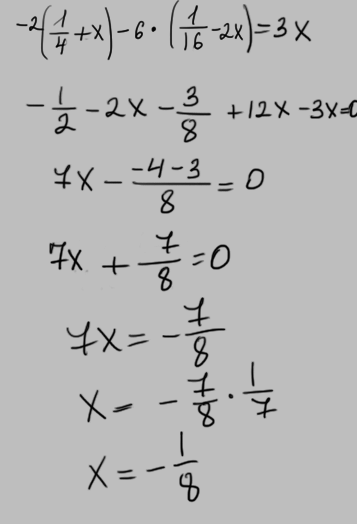 -2(1/4+x)-6·(1/16-2x)=3x
-1/2-2x-3/8+12x-3x=0
7x-(-4-3)/8=0
7x+7/8=0
7x=-7/8
x=-7/8·1/7
x=-1/8